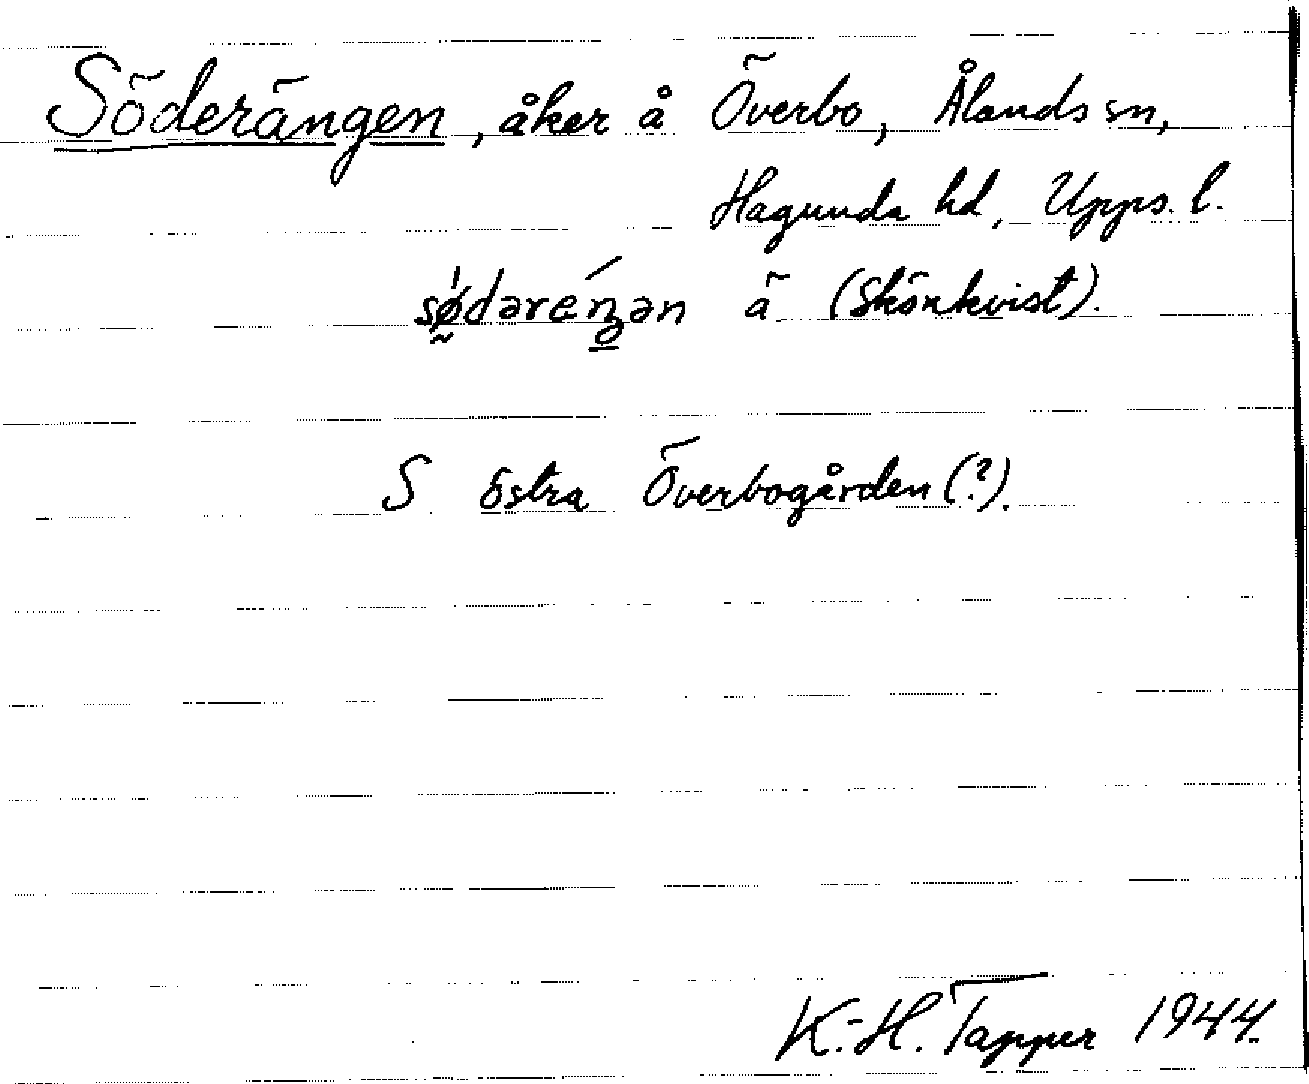 Söderängen, åker å Överbo, Ålands sn,
Hagunda hd, Upps. l.
sø̰̍dəréŋ̲ən ä (Skönkvist).
S östra Överbogården (?).
K.-H. Tapper 1944.